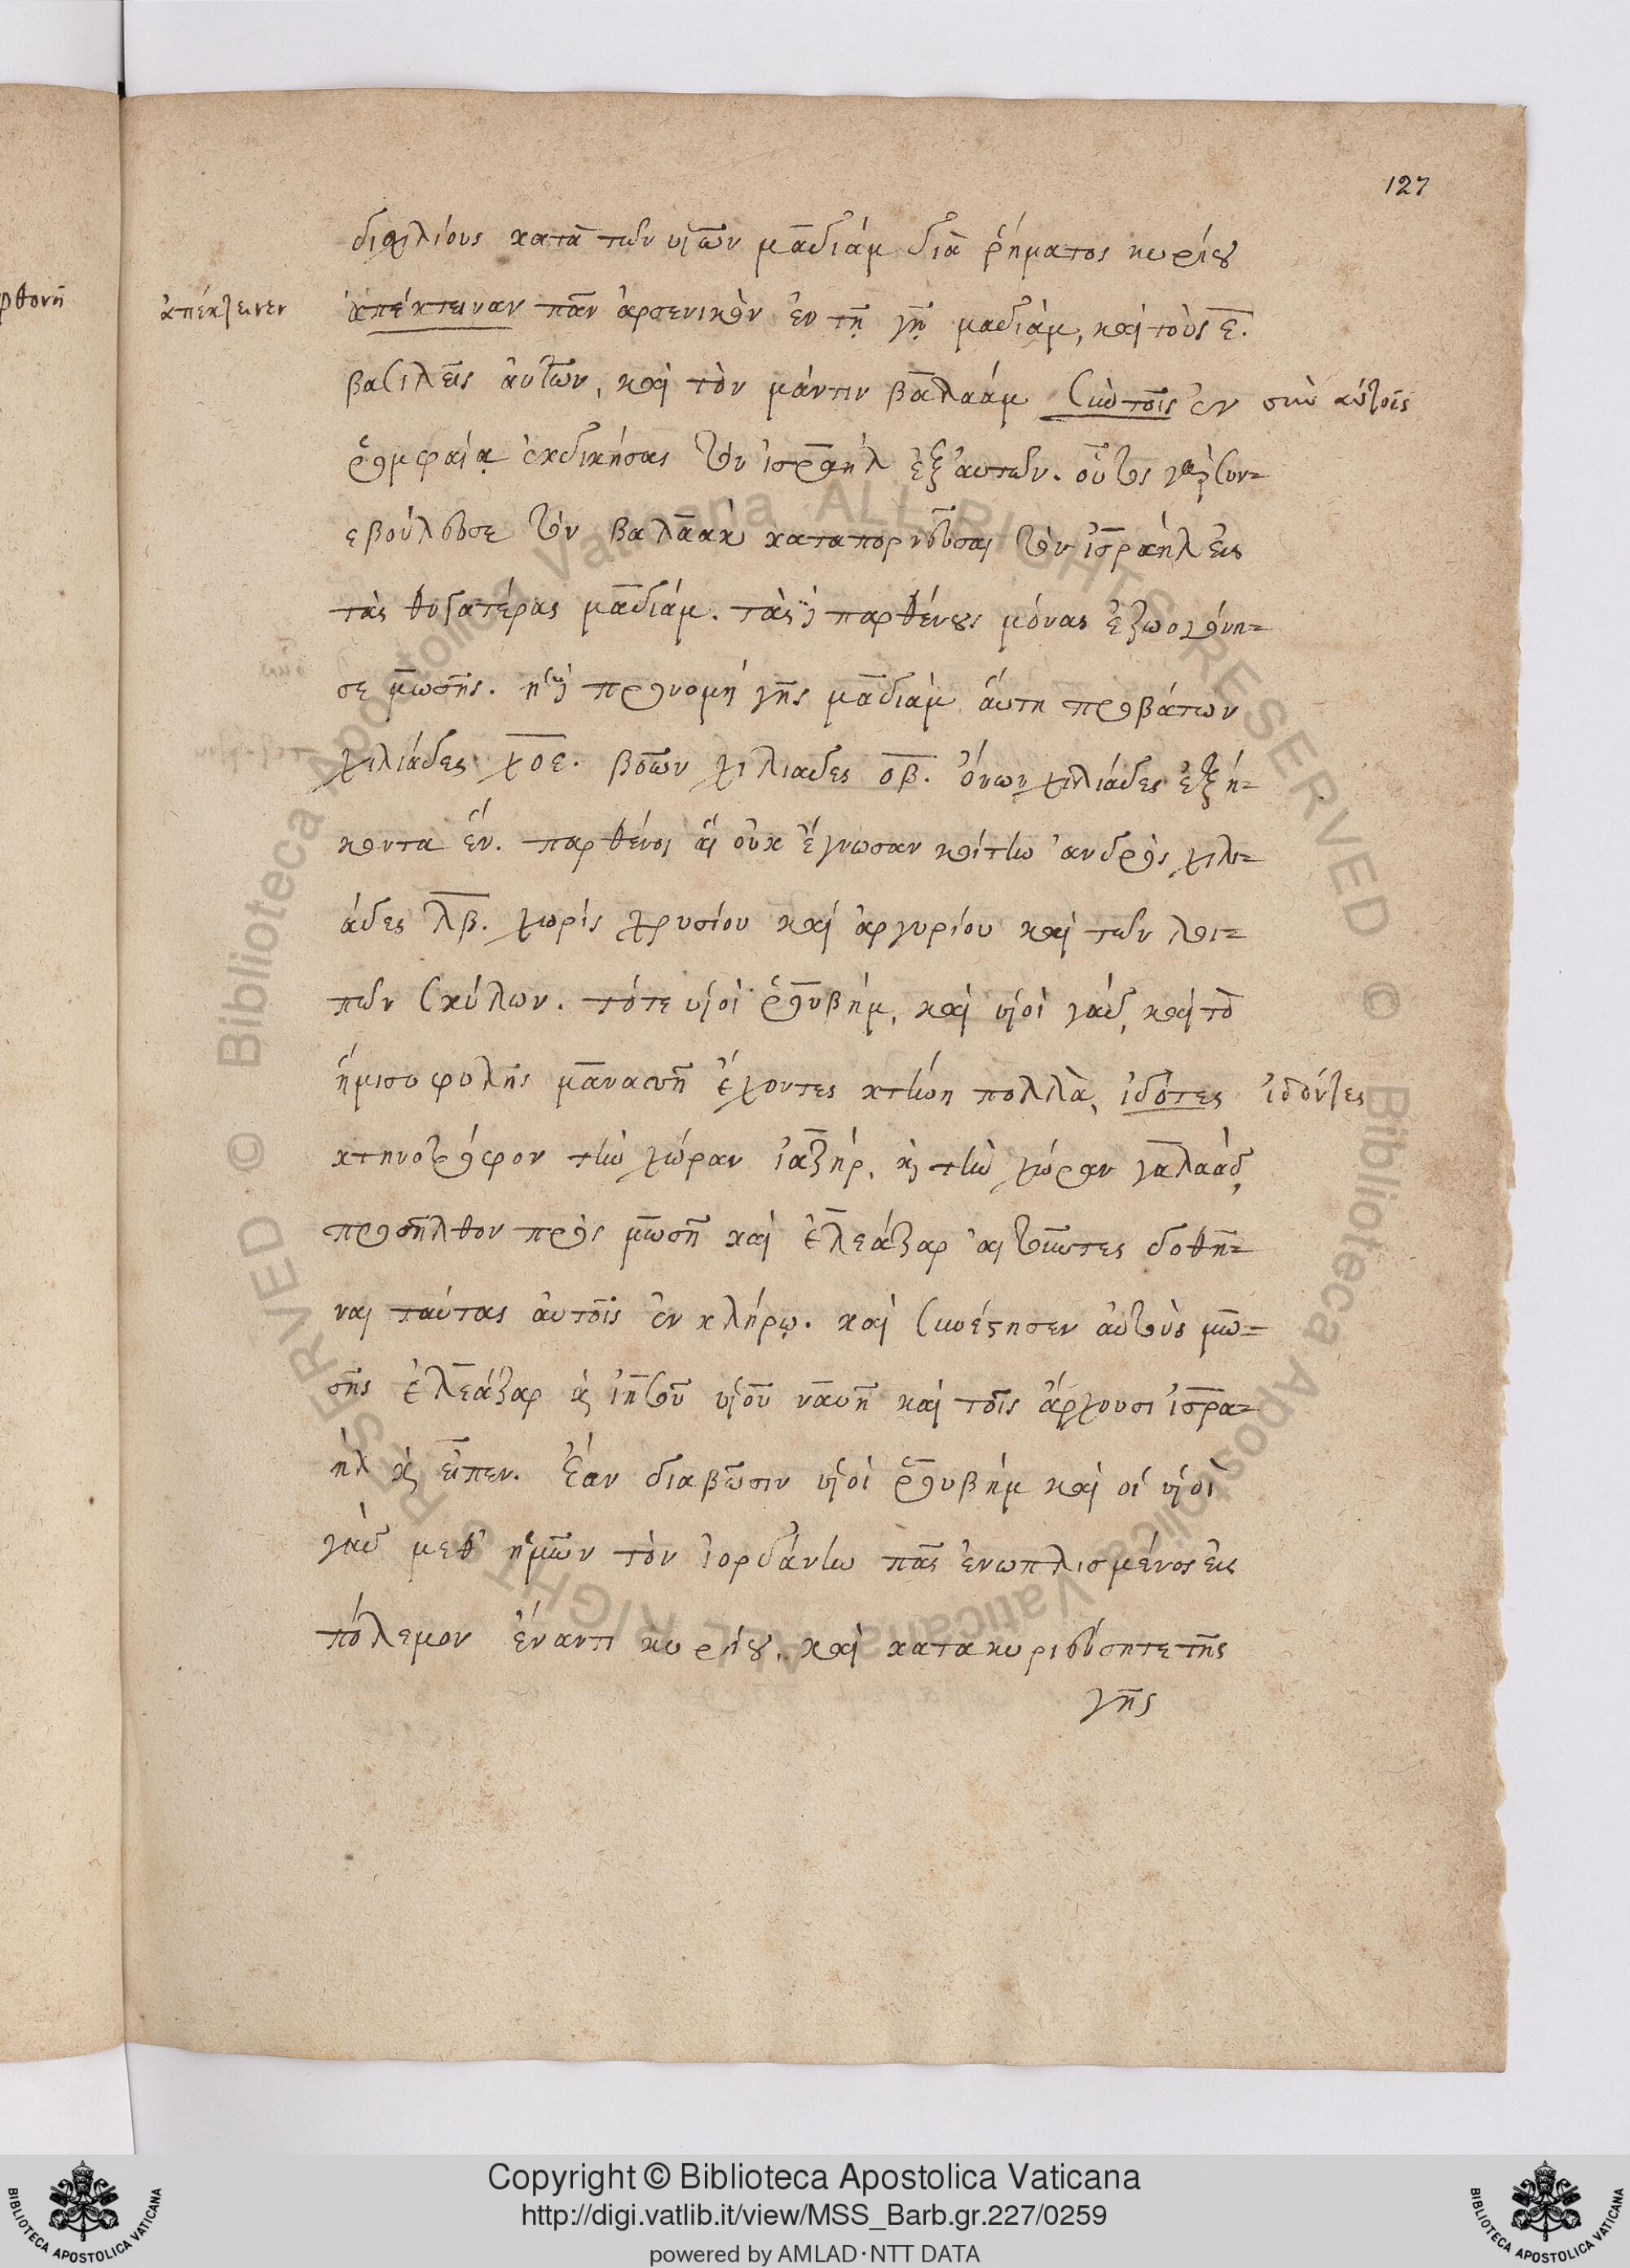 127
δισχιλίους κατὰ τῶν υἱῶν μαδιάμ διὰ ῥήματος κυρίου
ἀπέκτεινεν
ἀπέκτειναν πᾶν ἀρσενικὸν ἐν τῇ γῇ μαδιὰμ, καὶ τοὺς ε.
βασιλεῖς ἀυτῶν, καὶ τὸν μάντιν βαλαάμ σὺν τοῖς ἐν
σὺν αὐτοῖς
ῥομφαίᾳ ἐκδικήσας τὸν ἰσραὴλ ἐξ αυτῶν. οὗτος γὰρ συν=
εβούλευσε τὸν βαλαὰκ καταπορνεῦσαι τὸν ἰσραὴλ εἰς
τὰς θυγατέρας μαδιάμ. τὰς δὲ παρθένους μόνας ἐζωογόνη=
σε μωσῆς. ἡ δὲ προνομὴ γῆς μαδιὰμ ἅυτη προβάτων
χιλιάδες χοε. βοῶν χιλιαδες οβ. ὄνων χιλιάδες ἐξή=
κοντα ἕν. παρθένοι ἅι οὐκ ἔγνωσαν κοίτην ἀνδρὸς χιλι=
άδες λβ. χωρὶς χρυσίου καὶ ἀργυρίου καὶ τῶν λοι=
πῶν σκύλων. τότε υἱοὶ ῥουβήμ, καὶ υἱοὶ γάδ, καὶ τὸ
ἥμισυ φυλῆς μανασσῆ ἔχοντες κτήνη πολλὰ, ἰδότες
ἰδόντες
κτηνοτρόφον τὴν χώραν ἰαζήρ, καὶ τὴν χώραν γαλαάδ,
προσῆλθον πρὸς μωσῆ καὶ ἐλεάζαρ αἰτοῦντες δοθῆ=
ναι ταύτας ἀυτοῖς ἐν κλήρῳ. καὶ συνέστησεν αὐτοὺς μω=
σῆς ἐλεάζαρ καὶ ἰησοῦ υἱοῦ ναυῆ καὶ τοῖς ἄρχουσι ἰσρα=
ήλ καὶ εἶπεν. Ἐάν διαβῶσιν υἱοὶ ῥουβήμ καὶ οἱ υἱοὶ
γὰδ μεθ' ἡμῶν τὸν ἰορδάνην πᾶς ἐνωπλισμένος εἰς
πόλεμον ἔναντι κυρίου, καὶ κατακυριεύσητε τῆς
γῆς
Copyright © Biblioteca Apostolica Vaticana
http://digi.vatlib.it/view/MSS_Barb.gr.227/0259
powered by AMLAD·NTT DATA